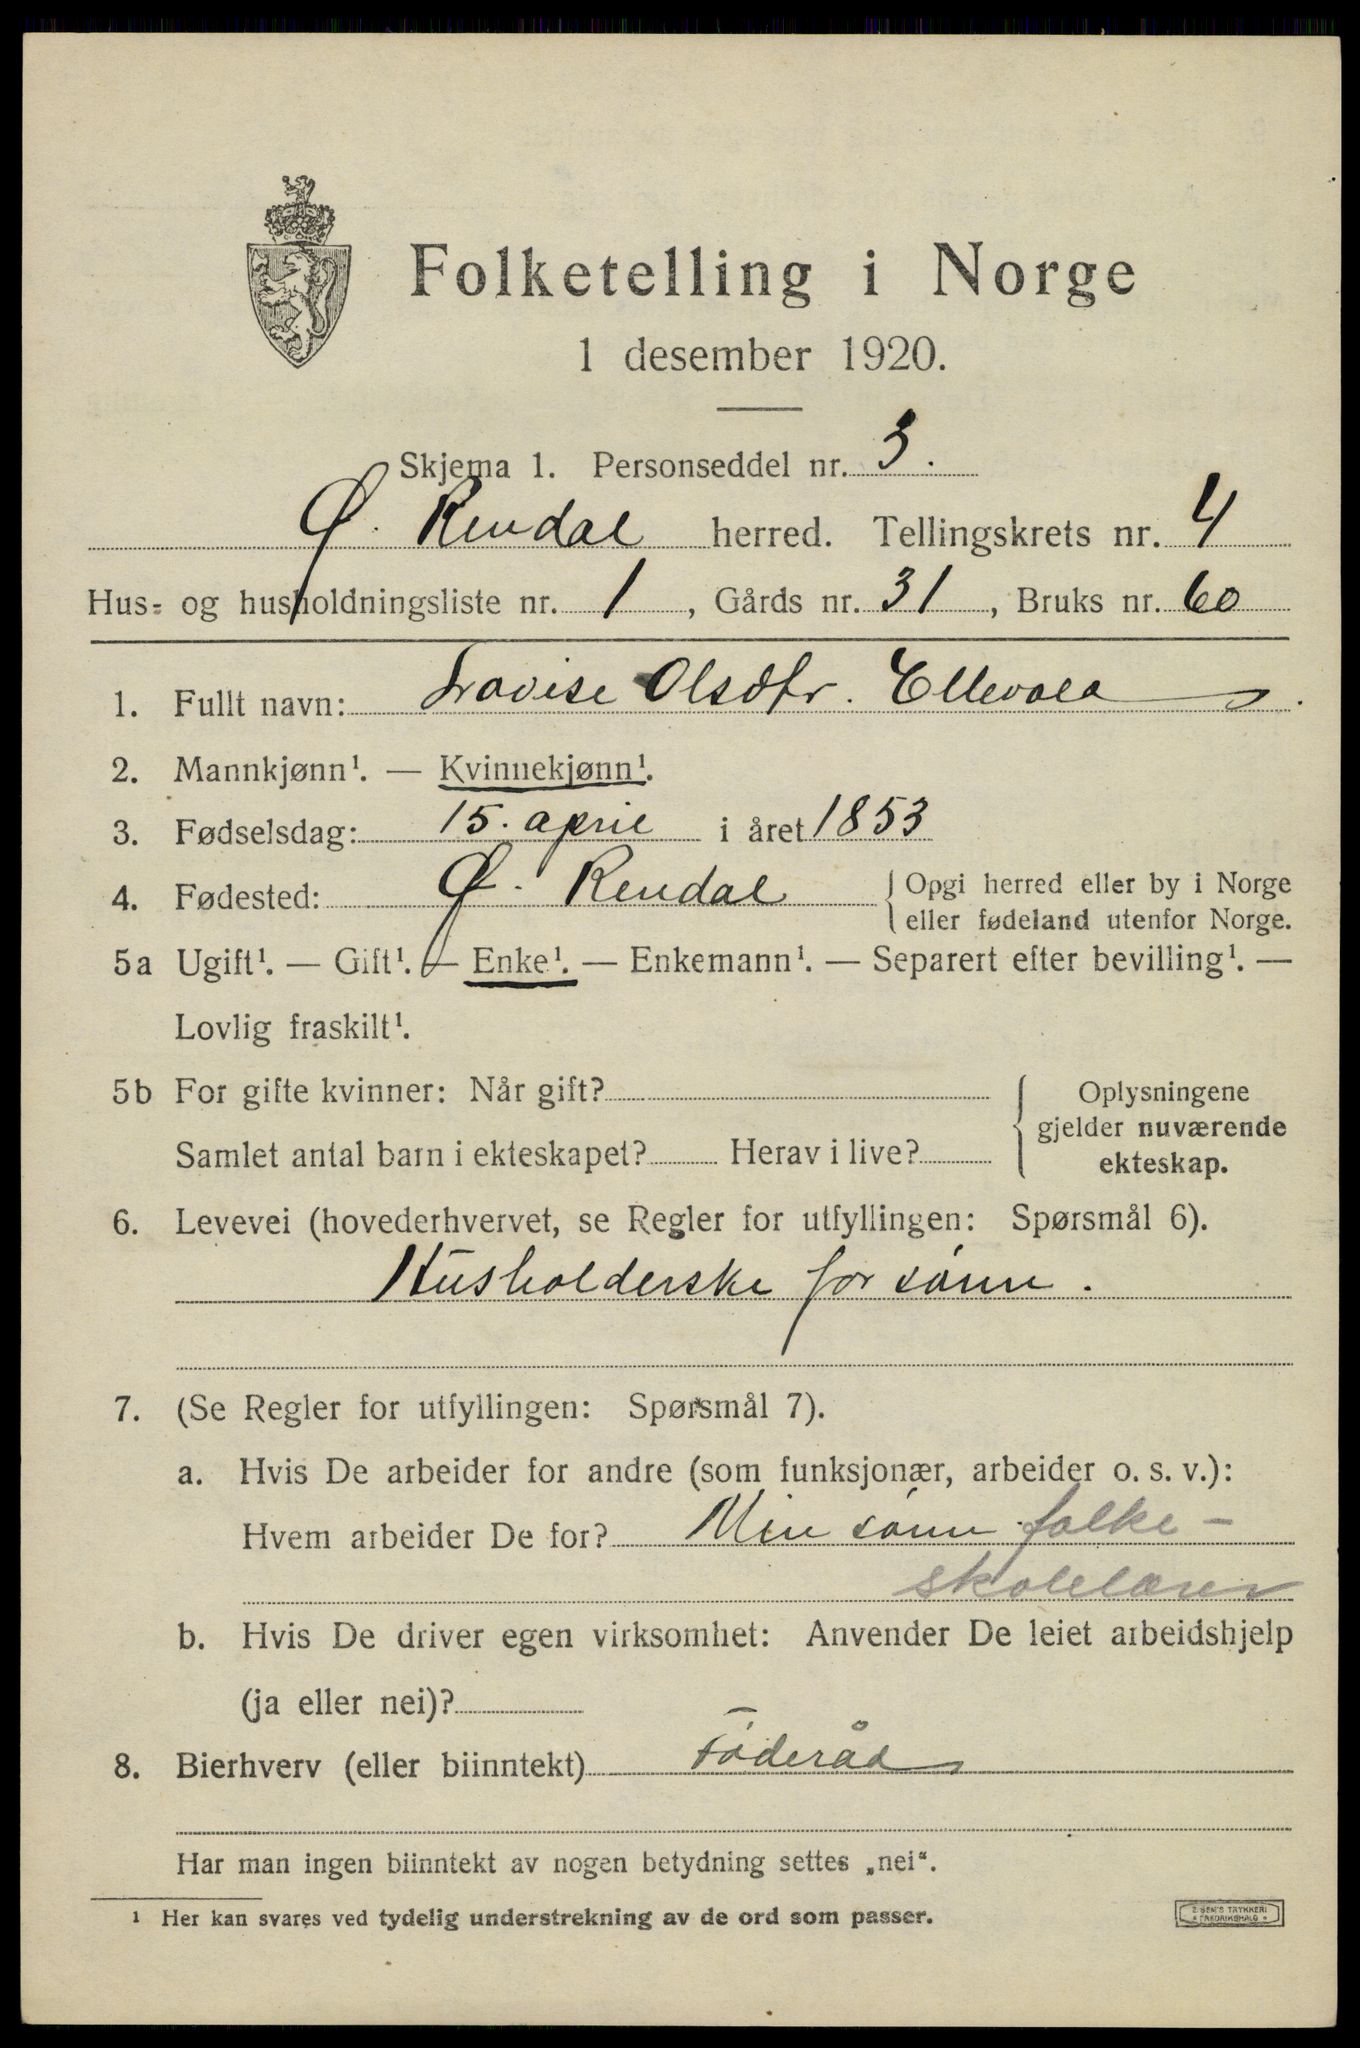 Folketelling i Norge
1 desember 1920.
Skjema 1. Personseddel nr. 3.
Ø. Rendal herred. Tellingskrets nr. 4
Hus- og husholdningsliste nr. 1, Gårds nr. 31, Bruks nr. 60
1. Fullt navn: Lovise Olsdtr. Ellevold.
2. Mannkjønn¹. — Kvinnekjønn¹.
3. Fødselsdag: 15. april i året 1853
4. Fødested: Ø. Rendal { Opgi herred eller by i Norge
eller fødeland utenfor Norge.
5a Ugift¹. — Gift¹. — Enke¹. — Enkemann¹. — Separert efter bevilling¹. —
Lovlig fraskilt¹.
5b For gifte kvinner: Når gift?
Samlet antal barn i ekteskapet? Herav i live?
{ Oplysningene
gjelder nuværende
ekteskap.
6. Levevei (hovederhvervet, se Regler for utfyllingen: Spørsmål 6).
Husholderske for sønn.
7. (Se Regler for utfyllingen: Spørsmål 7).
a. Hvis De arbeider for andre (som funksjonær, arbeider o. s. v.):
Hvem arbeider De for? Min sønn folke-
skolelærer
b. Hvis De driver egen virksomhet: Anvender De leiet arbeidshjelp
(ja eller nei)?
8. Bierhverv (eller biinntekt) Föderåd
Har man ingen biinntekt av nogen betydning settes „nei“.
¹ Her kan svares ved tydelig understrekning av de ord som passer.